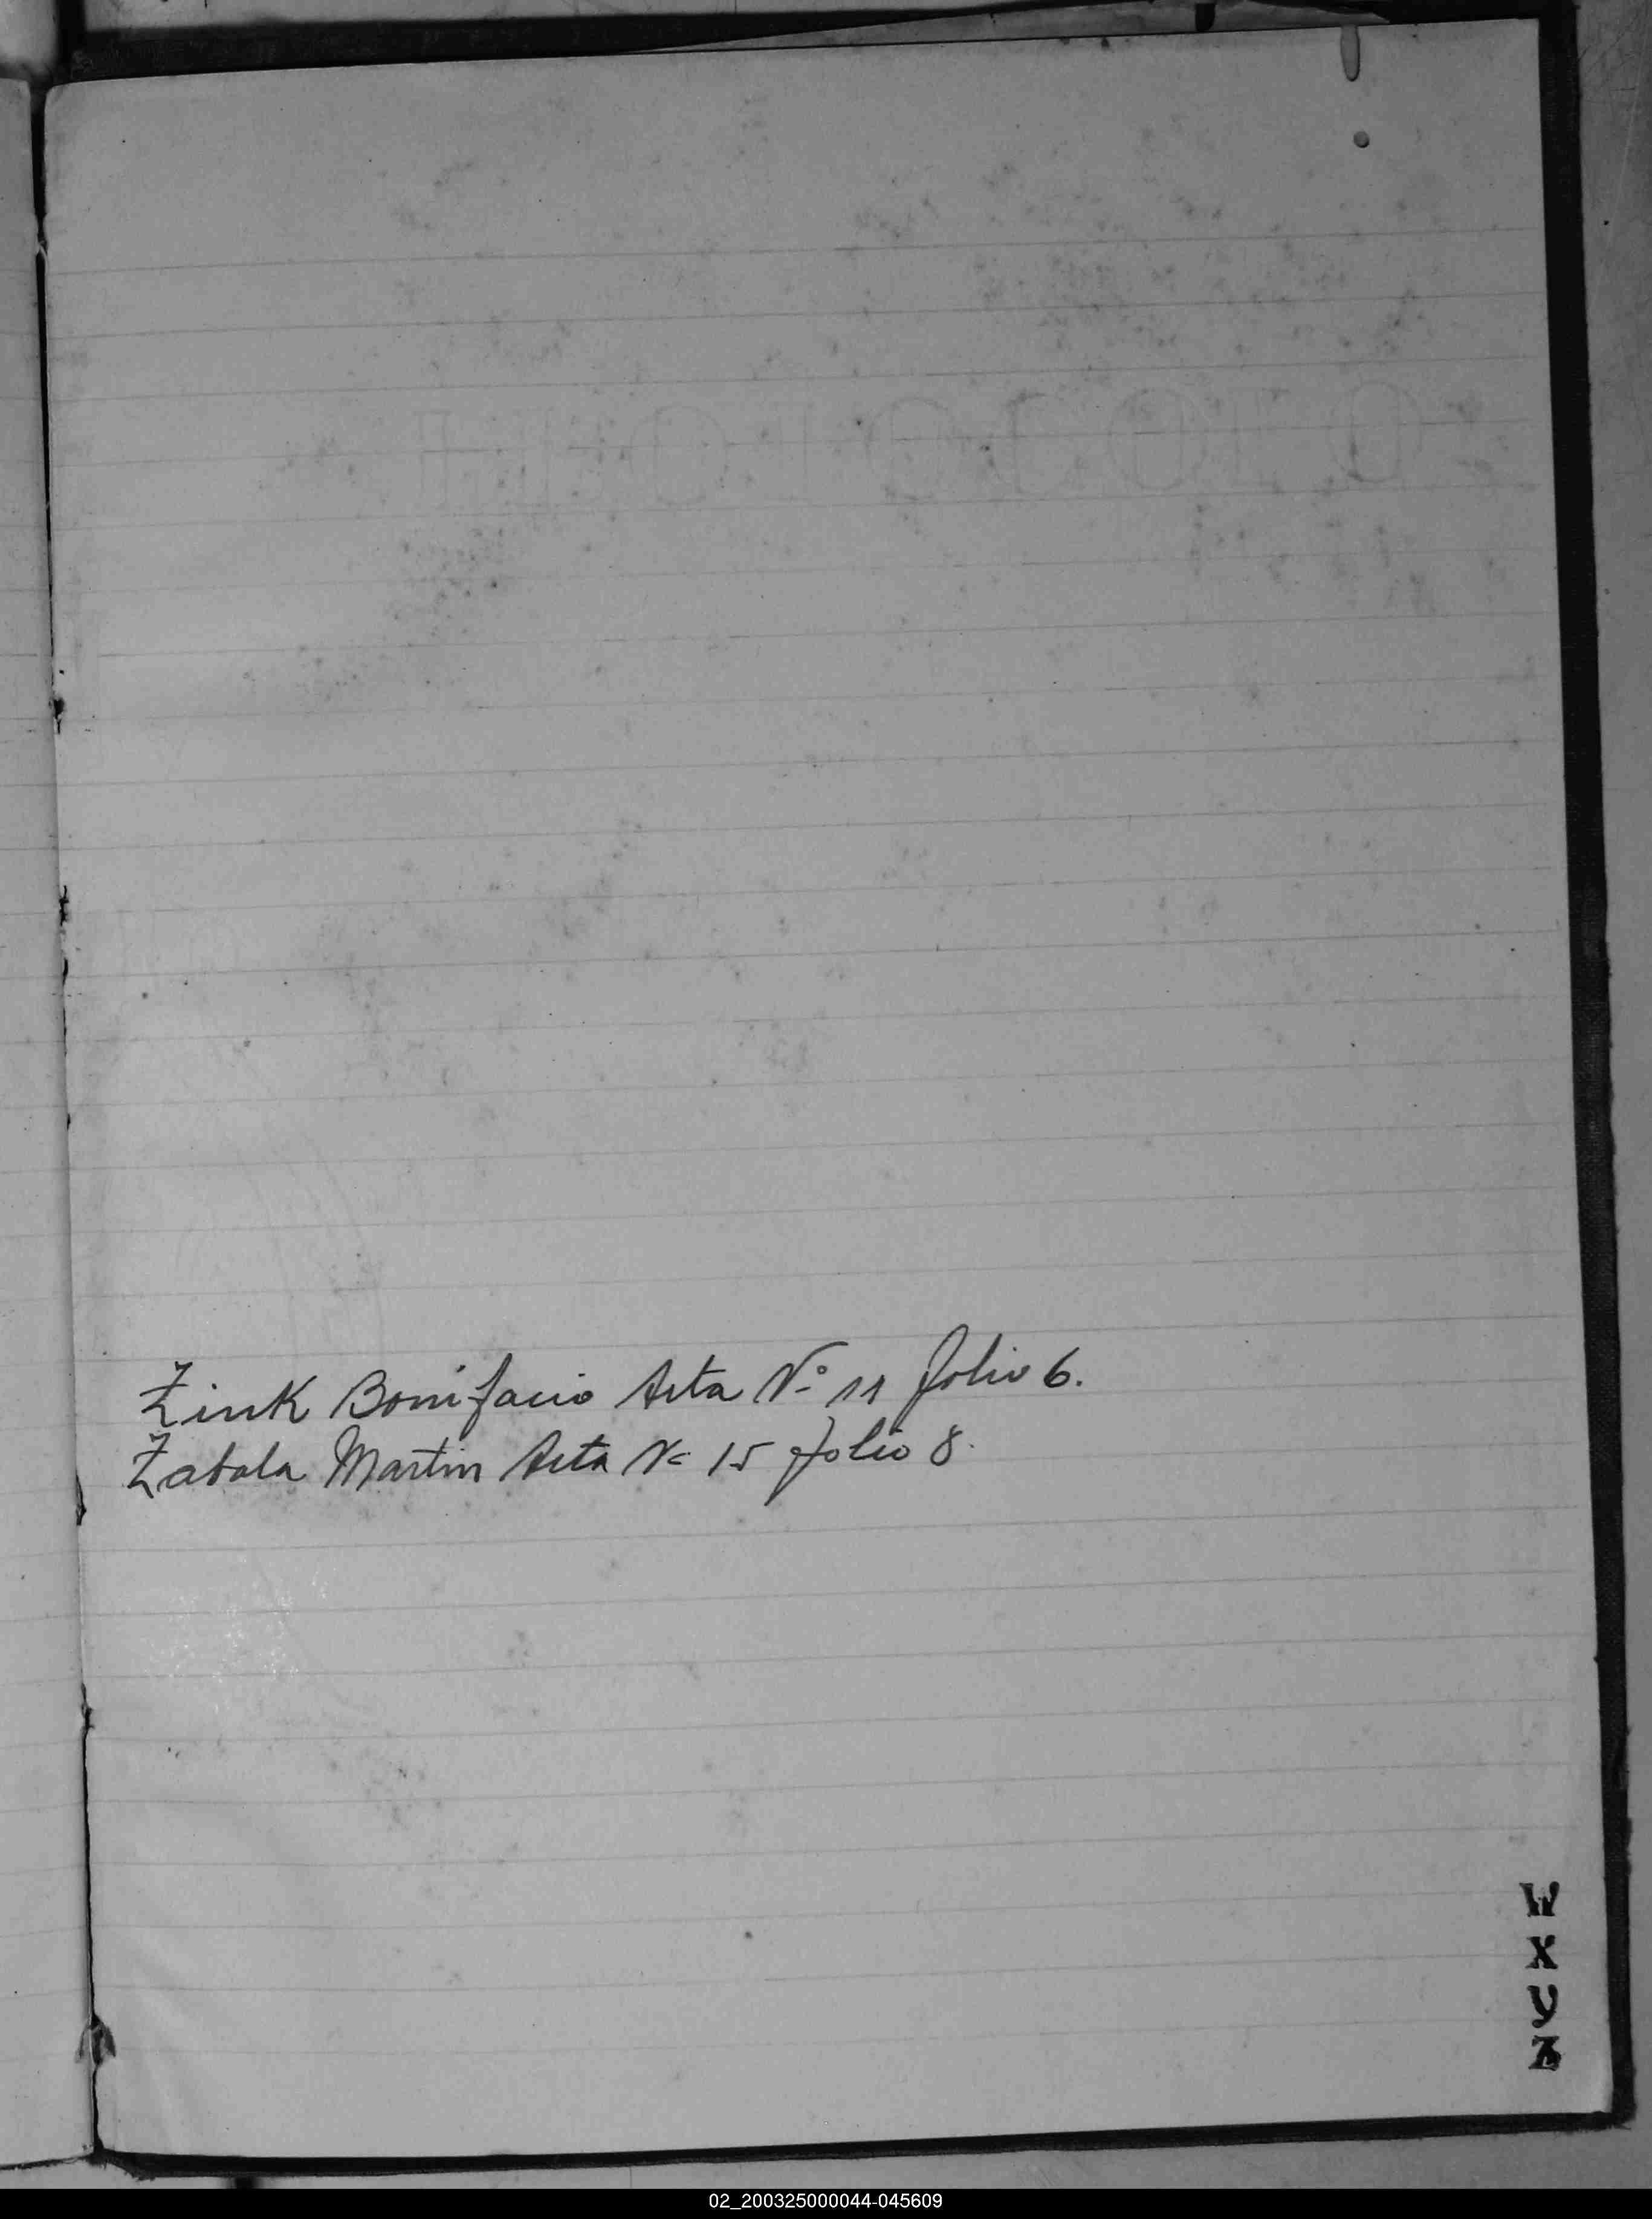 Zink Bonifacio Acta N° 11 folio 6.
Zabala Martin Acta N= 15 folio 8.
W
X
Y
Z
02_200325000044-045609